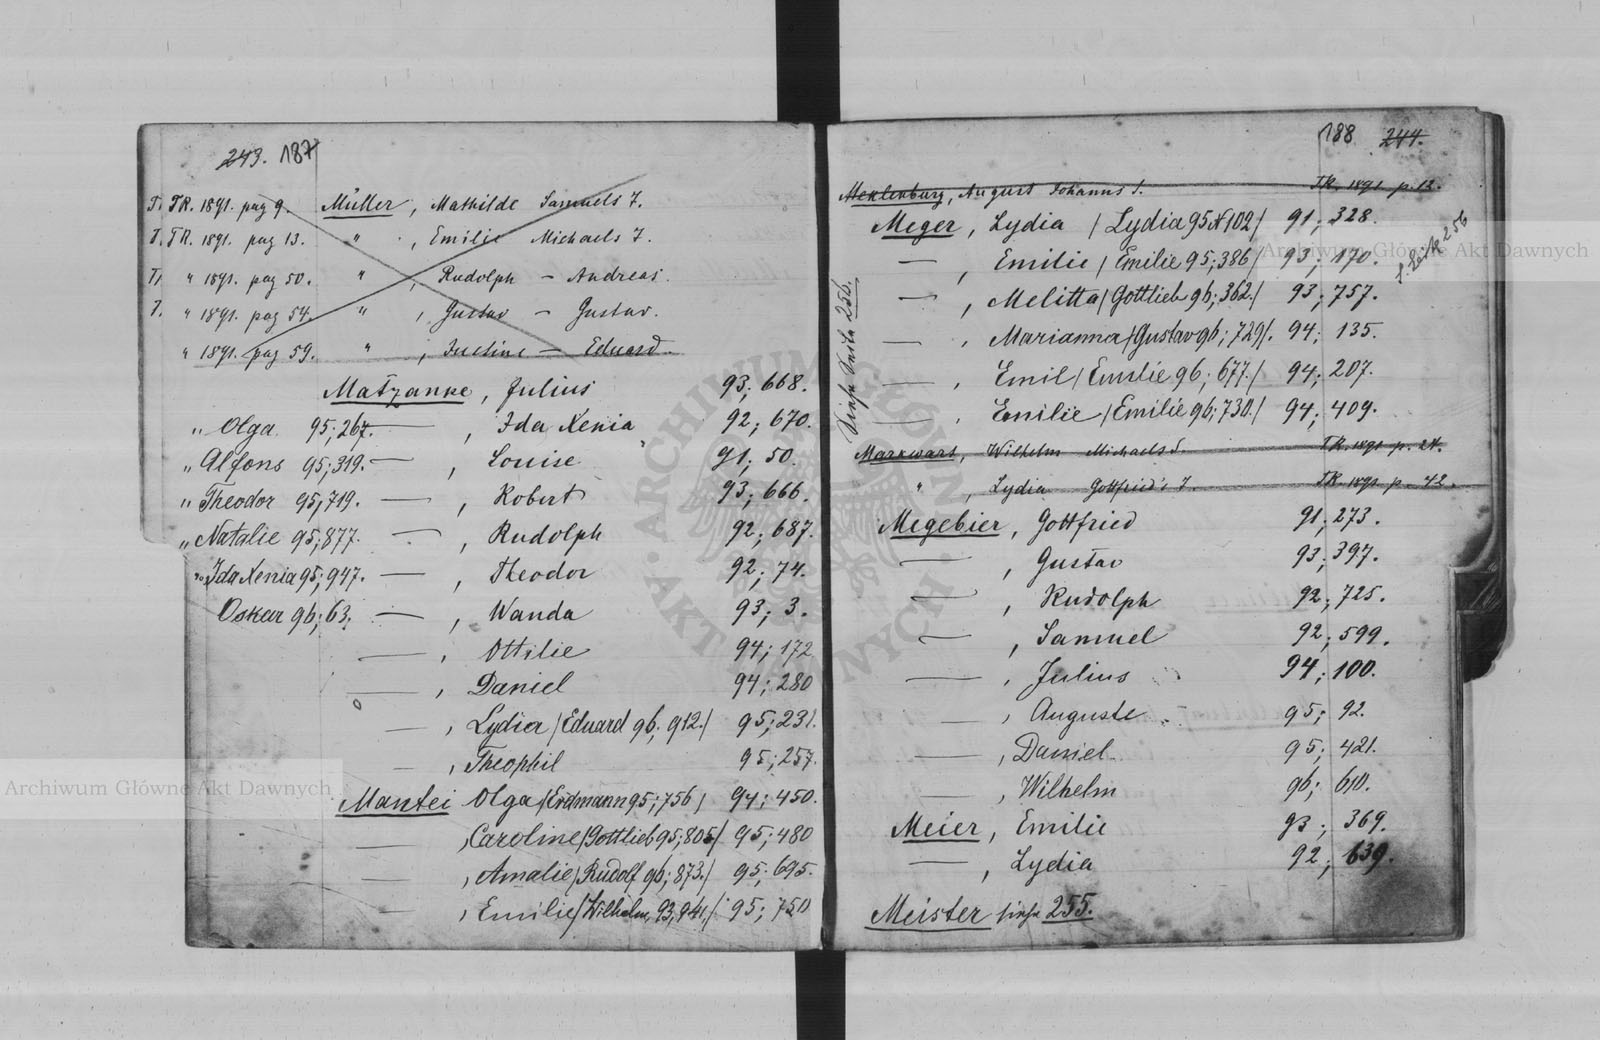 243. 187
T. TR. 1891. pag 9. Müller, Mathilde Samuels T.
T. TR. 1891. pag 13. " , Emilie Michaels T.
T. " 1891. pag 50. " , Rudolph – Andreas.
T. " 1891. pag 54. " , Gustav – Gustav.
" 1891. pag 59. " , Justine – Eduard.
Matzanke, Julius 93; 668.
" Olga 95; 267. — , Ida Xenia 92; 670.
" Alfons 95; 319. — , Louise 91; 50.
" Theodor 95; 719. — , Robert 93; 666.
" Natalie 95; 877. — , Rudolph 92; 687.
" Ida Xenia 95; 947. — , Theodor 92; 74.
Oskar 96; 63. — , Wanda 93; 3.
— , Ottilie 94; 172
— , Daniel 94; 280
— , Lydia /Eduard 96; 912./ 95; 231.
— , Theophil 95; 257.
Mantei Olga /Erdmann 95; 756/ 94; 450.
— , Caroline /Gottlieb 95; 805/ 95; 480
— , Amalie /Rudolf 96; 873./ 95; 695.
— , Emilie /Wilhelm, 93; 941./ 95; 750
188 244.
Meklenburg, August Johanns S. TR. 1891. p. 12.
Meger, Lydia /Lydia 95 N 102/ 91; 328.
— , Emilie /Emilie 95; 386/ 93; 170.
— , Melitta /Gottlieb 96; 362./ 93; 757.
— , Marianna /Gustav 96; 729/. 94; 135.
— , Emil /Emilie 96; 677./ 94; 207.
— , Emilie /Emilie 96; 730./ 94; 409.
Siehe Seite 256.
S. Seite 256
Markwart, Wilhelm Michaels S. TR. 1891 p. 24.
" , Lydia Gottfried's T. TR. 1891 p. 42.
Megebier, Gottfried 91; 273.
— , Gustav 93; 397.
— , Rudolph 92; 725.
— , Samuel 92; 599.
— , Julius 94; 100.
— , Auguste 95; 92.
— , Daniel 95; 421.
— , Wilhelm 96; 610.
Meier, Emilie 93; 369.
— , Lydia 92; 639.
Meister siehe 255.
Archiwum Główne Akt Dawnych
Archiwum Główne Akt Dawnych
ARCHIWUM GŁÓWNE AKT DAWNYCH